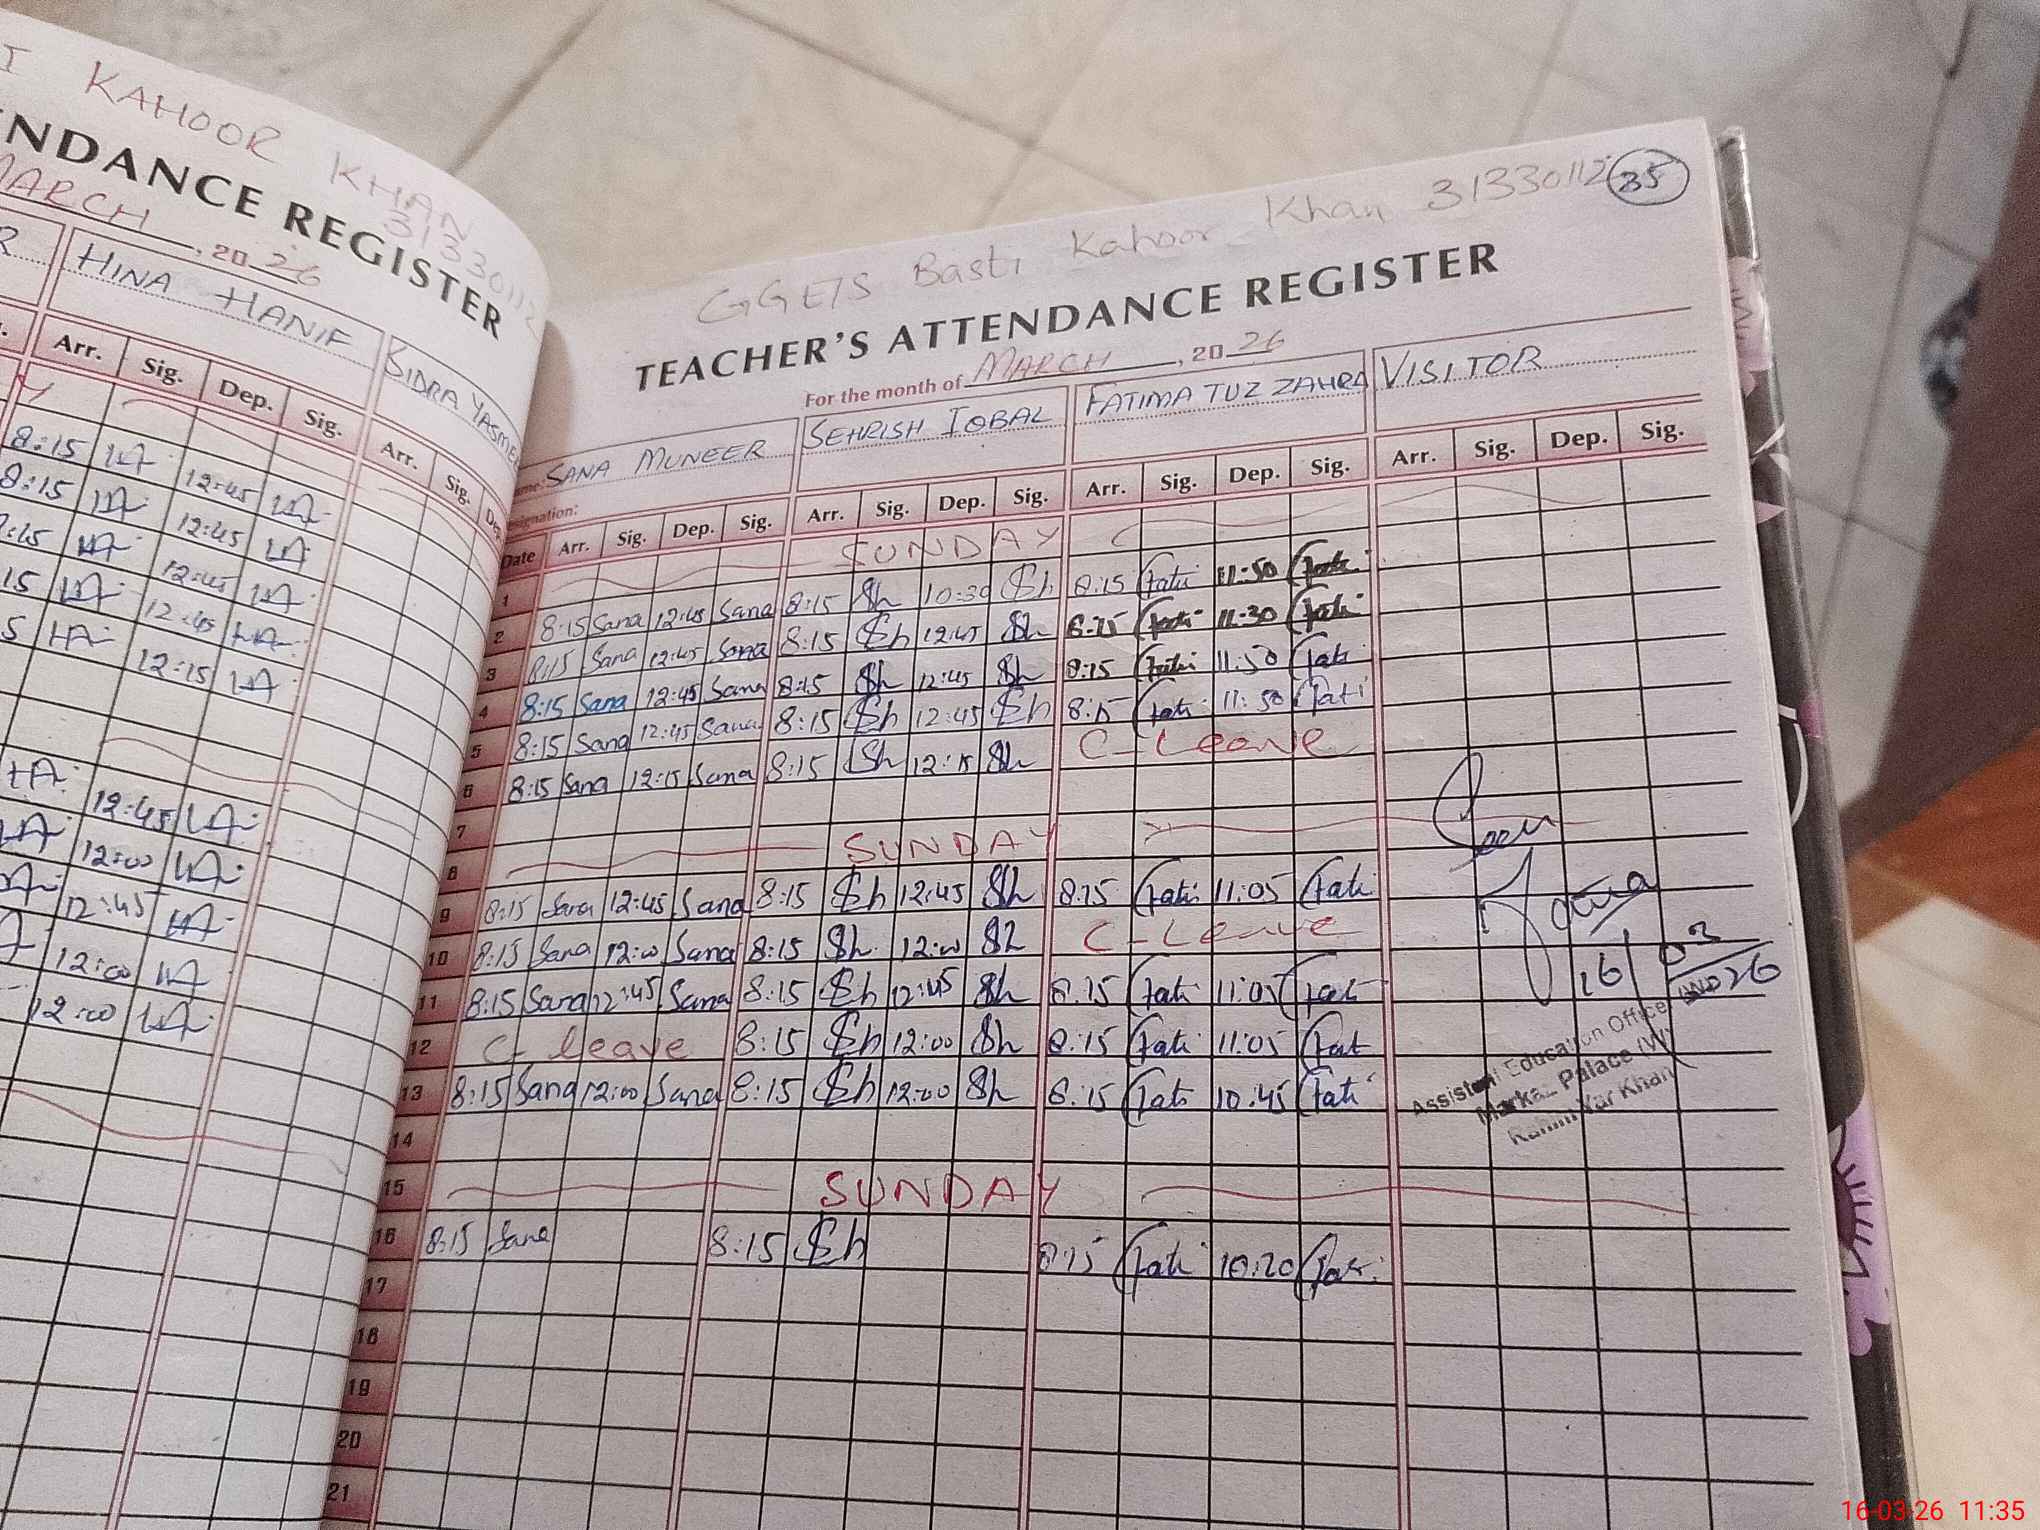 KAHOOR KHAN
31330112
NDANCE REGISTER
MARCH, 2026
HINA HANIF
SIDRA YASME
Arr. Sig. Dep. Sig. Arr. Sig. De
8:15 12:45
8:15 12:45
12:45
15 12:45
5 12:15
12:45
12:00
12:45
12:00
12:00
GGES Basti Kahoor Khan 31330112 35
TEACHER'S ATTENDANCE REGISTER
For the month of MARCH, 2026
SANA MUNEER SEHRISH IQBAL FATIMA TUZ ZAHRA VISITOR
signation:
Date Arr. Sig. Dep. Sig. Arr. Sig. Dep. Sig. Arr. Sig. Dep. Sig. Arr. Sig. Dep. Sig.
1 SUNDAY
2 8:15 Sana 12:45 Sana 8:15 Sh 10:30 Sh 8:15 Fati 11:50 Fati
3 8:15 Sana 12:45 Sana 8:15 Sh 12:45 Sh 8:15 Fati 11:30 Fati
4 8:15 Sana 12:45 Sana 8:15 Sh 12:45 Sh 8:15 Fati 11:50 Fati
5 8:15 Sana 12:45 Sana 8:15 Sh 12:45 Sh 8:15 Fati 11:50 Fati
6 8:15 Sana 12:15 Sana 8:15 Sh 12:15 Sh C-Leave
7
8 SUNDAY
9 8:15 Sana 12:45 Sana 8:15 Sh 12:45 Sh 8:15 Fati 11:05 Fati
10 8:15 Sana 12:00 Sana 8:15 Sh 12:00 Sh C-Leave
11 8:15 Sana 12:45 Sana 8:15 Sh 12:45 Sh 8:15 Fati 11:05 Fati
12 C-leave 8:15 Sh 12:00 Sh 8:15 Fati 11:05 Fati
13 8:15 Sana 12:00 Sana 8:15 Sh 12:00 Sh 8:15 Fati 10:45 Fati
14
15 SUNDAY
16 8:15 Sana 8:15 Sh 8:15 Fati 10:20 Fati
17
18
19
20
21
16/03/2026
Assistant Education Officer
Markaz Palace (W)
Rahim Yar Khan
16-03-26 11:35